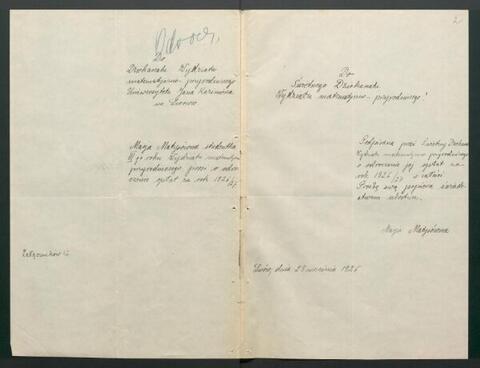 Do
Dziekanatu Wydziału
matematyczno-przyrodniczego
Uniwersytetu Jana Kazimierza
we Lwowie
Marja Matysówna studentka
III go roku Wydziału matematyczno
przyrodniczego prosi o odro-
czenie opłat na rok 1926/27
Załączników
2
Do
Świetnego Dziekanatu
Wydziału matematyczno-przyrodniczego!
Podpisana prosi Świetny Dziekanat
Wydziału matematyczno przyrodniczego
o odroczenie jej opłat na
rok 1926/27 w całości
Prośbę swą popiera świade-
ctwem ubóstwa.
Marja Matysówna
Lwów, dnia 28 września 1926